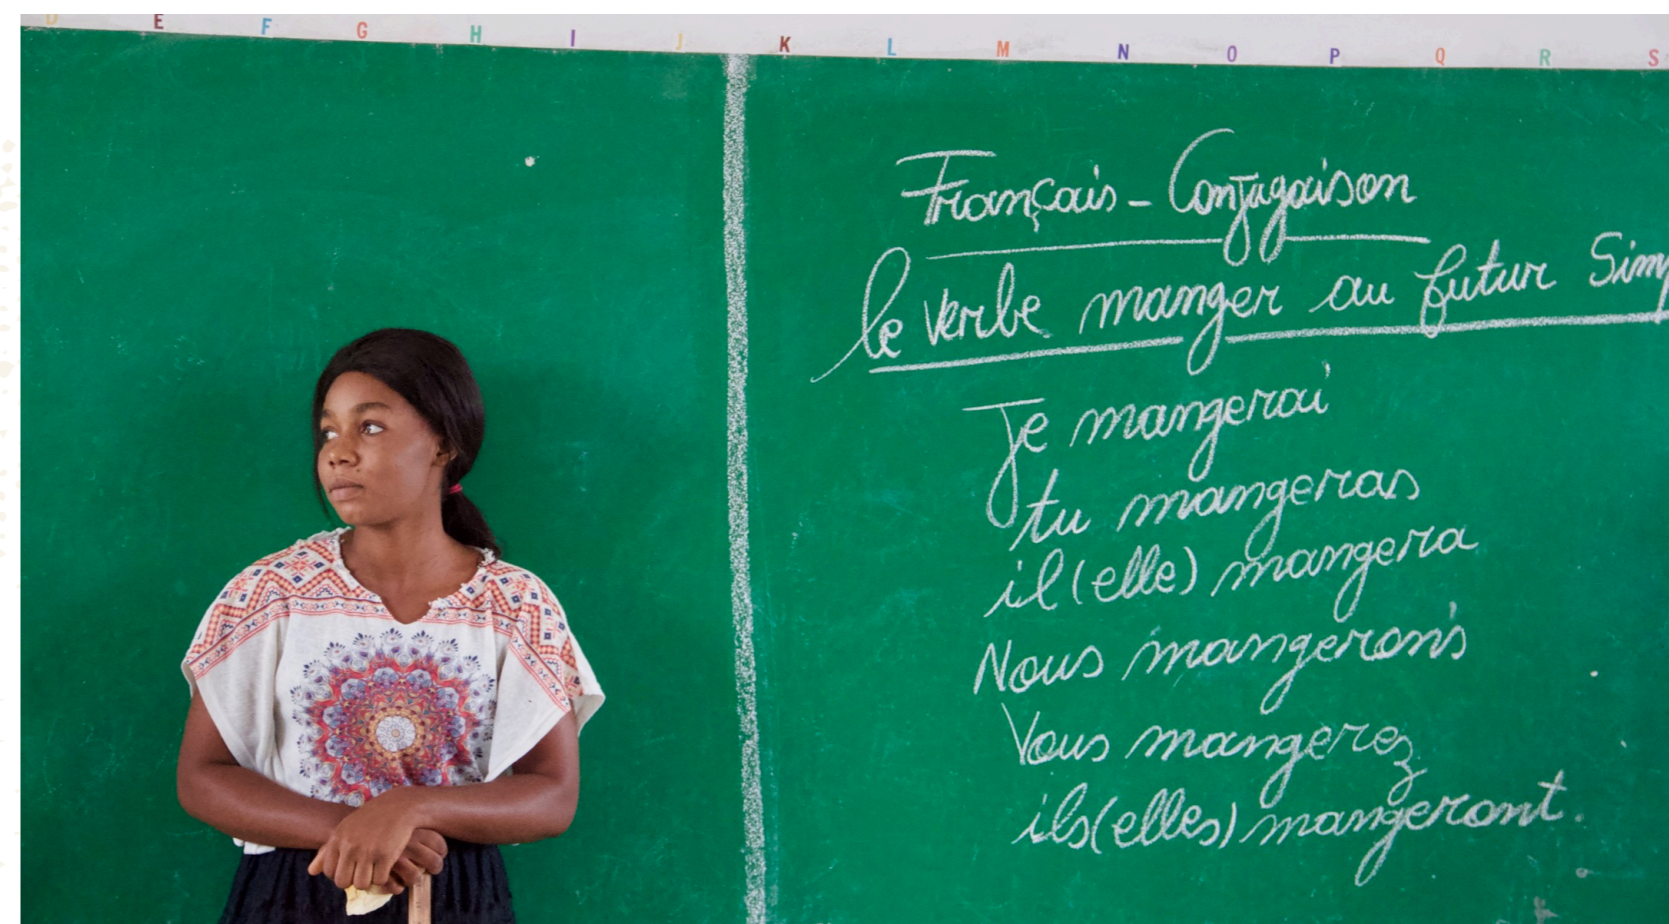 D E F G H I J K L M N O P Q R S
Français - Conjugaison
le verbe manger au futur Simp
Je mangerai
tu mangeras
il (elle) mangera
Nous mangerons
Vous mangerez
ils (elles) mangeront.